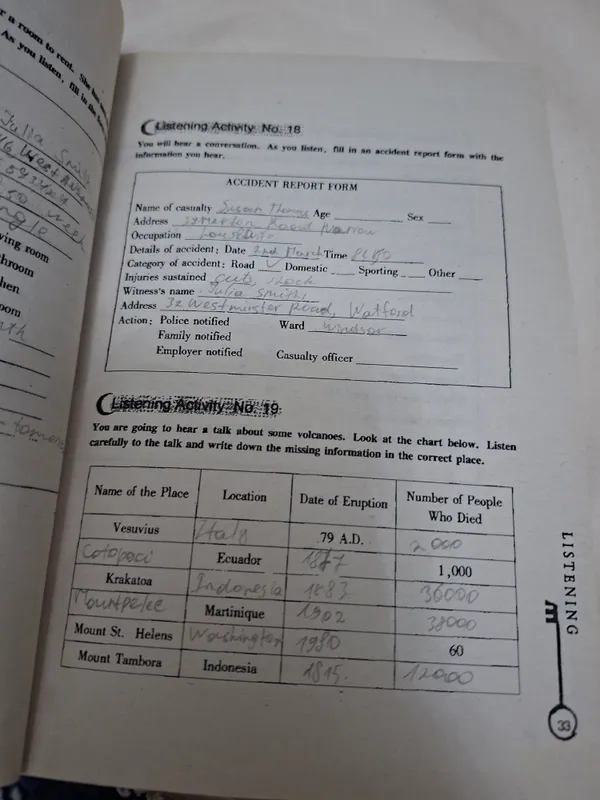 r a room to rent. She has
As you listen, fill in the
Julia Smith
46 West A
week
ngle
ving room
throom
hen
oom
Listening Activity No. 18
You will hear a conversation. As you listen, fill in an accident report form with the
information you hear.
ACCIDENT REPORT FORM
Name of casualty Susan Thomas Age Sex
Address Road
Occupation
Details of accident: Date 2nd March Time
Category of accident: Road ✓ Domestic Sporting Other
Injuries sustained cuts, shock
Witness's name Julia Smith,
Address 32 Westminster Road, Watford
Action: Police notified Ward Windsor
Family notified
Employer notified Casualty officer
Listening Activity No. 19
You are going to hear a talk about some volcanoes. Look at the chart below. Listen
carefully to the talk and write down the missing information in the correct place.
Name of the Place Location Date of Eruption Number of People
Who Died
Vesuvius Italy 79 A.D. 2000
Cotopaci Ecuador 1877 1,000
Krakatoa Indonesia 1883 36000
Mountpelee Martinique 1902 38000
Mount St. Helens Washington 1980 60
Mount Tambora Indonesia 1815. 12000
LISTENING
33